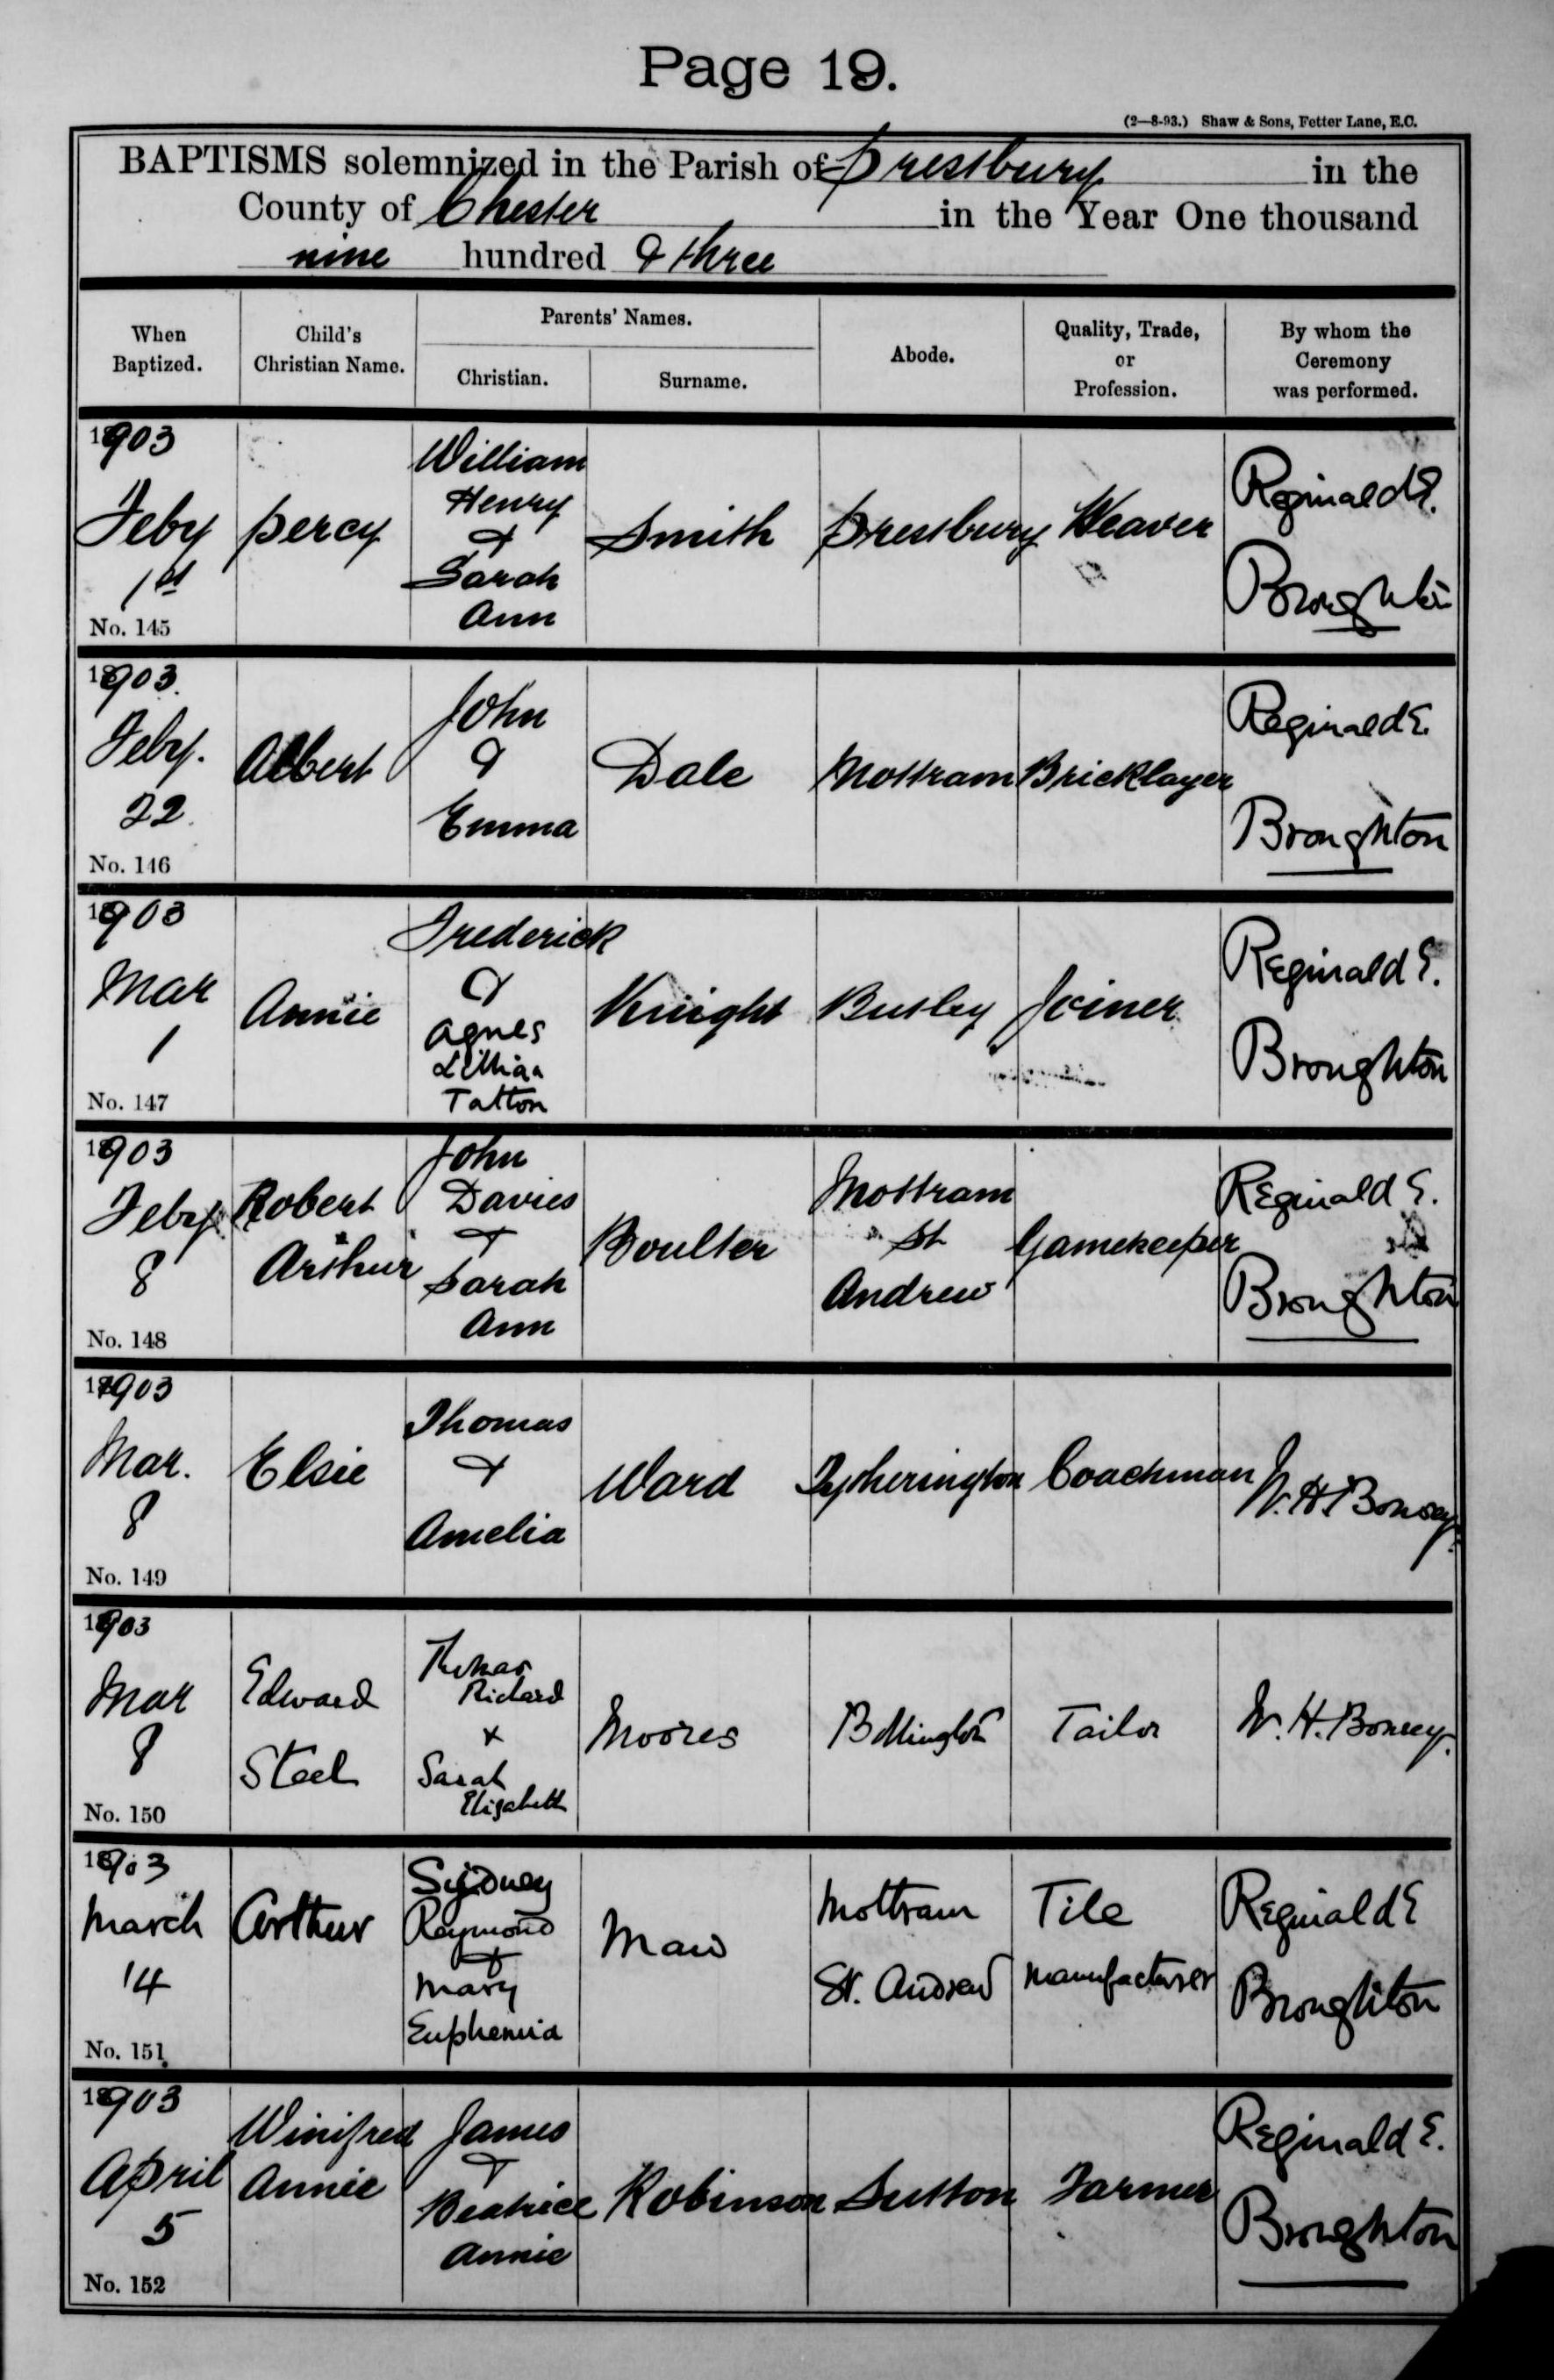 Page 19.
(2—8-93.) Shaw & Sons, Fetter Lane, E.C.
BAPTISMS solemnized in the Parish of Prestbury in the
County of Chester in the Year One thousand
nine hundred & three
When
Baptized.
Child's
Christian Name.
Parents' Names.
Christian.
Surname.
Abode.
Quality, Trade,
or
Profession.
By whom the
Ceremony
was performed.
1903
Feby
1st
No. 145
Percy
William
Henry
&
Sarah
Ann
Smith
Prestbury
Weaver
Reginald E.
Broughton
1903.
Feby.
22.
No. 146
Albert
John
&
Emma
Dale
Mottram
Bricklayer
Reginald E.
Broughton
1903
Mar
1
No. 147
Annie
Frederick
&
Agnes
Lillian
Tatton
Knight
Butley
Joiner
Reginald E.
Broughton
1903
Feby
8
No. 148
Robert
Arthur
John
Davies
&
Sarah
Ann
Boulter
Mottram
St
Andrew
Gamekeeper
Reginald E.
Broughton
1903
Mar.
8
No. 149
Elsie
Thomas
&
Amelia
Ward
Tytherington
Coachman
W. H. Bonsey.
1903
Mar
8
No. 150
Edward
Steel
Thomas
Richard
x
Sarah
Elizabeth
Moores
Bollington
Tailor
W. H. Bonsey.
1903
March
14
No. 151
Arthur
Sydney
Raymond
&
Mary
Euphemia
Maw
Mottram
St. Andrew
Tile
Manufacturer
Reginald E
Broughton
1903
April
5
No. 152
Winifred
Annie
James
&
Beatrice
Annie
Robinson
Sutton
Farmer
Reginald E.
Broughton